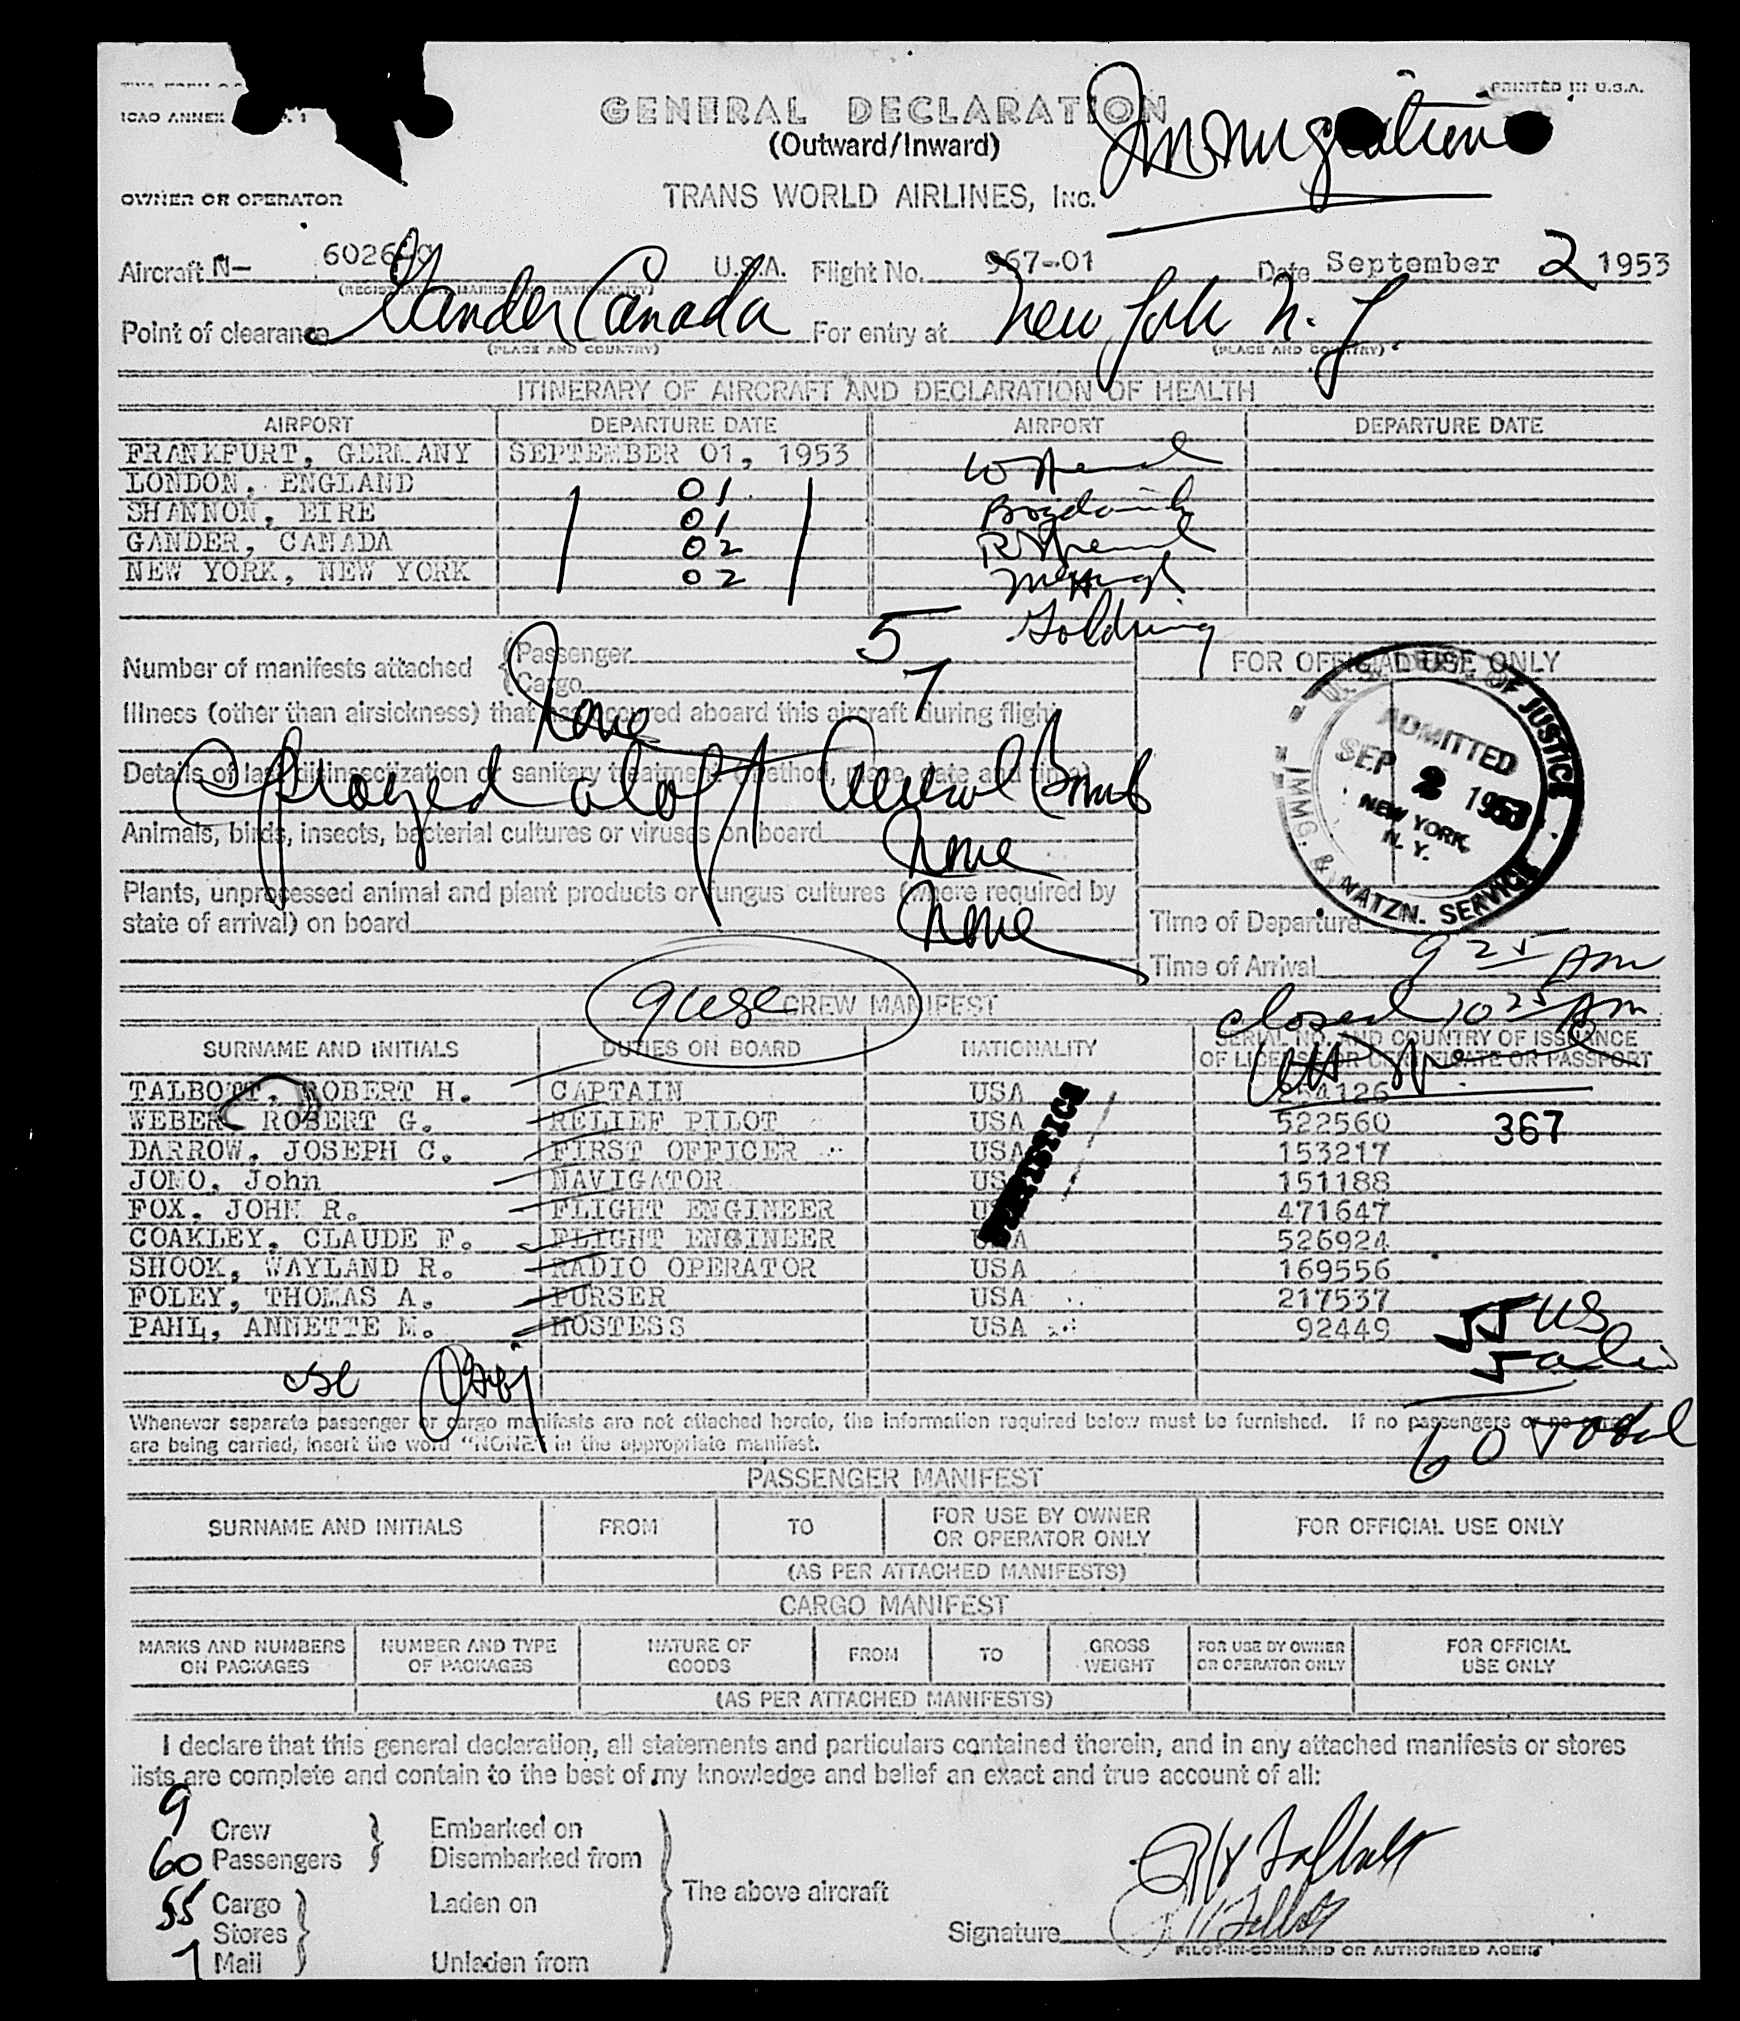 ICAO ANNEX
PRINTED IN U.S.A.
GENERAL DECLARATION
(Outward/Inward)
Immigration
OWNER OR OPERATOR
TRANS WORLD AIRLINES, INC.
Aircraft N- U.S.A. Flight No. 967-01 Date September 2 1953
(REGISTRATION MARKS AND NATIONALITY)
Point of clearance Gander Canada For entry at New York N. Y
(PLACE AND COUNTRY) (PLACE AND COUNTRY)
ITINERARY OF AIRCRAFT AND DECLARATION OF HEALTH
AIRPORT DEPARTURE DATE AIRPORT DEPARTURE DATE
FRANKFURT, GERMANY SEPTEMBER 01, 1953
LONDON, ENGLAND 01
SHANNON, EIRE 01
GANDER, CANADA 02
NEW YORK, NEW YORK 02
Goldring
Number of manifests attached
Passenger 5
Cargo 7
FOR OFFICIAL USE ONLY
Illness (other than airsickness) that has occurred aboard this aircraft during flight
None
Details of last disinsectization or sanitary treatment (method, place, date and time)
Sprayed aloft Aerosol Bomb
Animals, birds, insects, bacterial cultures or viruses on board
None
Plants, unprocessed animal and plant products or fungus cultures (where required by
state of arrival) on board
None
ADMITTED
SEP 2 1953
NEW YORK,
N. Y.
U.S. OF JUSTICE
IMMG. & NATZN. SERVICE
Time of Departure
Time of Arrival 9 25 PM
closed 10 25 PM
9 USC
CREW MANIFEST
SURNAME AND INITIALS DUTIES ON BOARD NATIONALITY SERIAL NO. AND COUNTRY OF ISSUANCE
OF LICENSE OR CERTIFICATE OR PASSPORT
TALBOTT, ROBERT H. CAPTAIN USA
WEBER ROBERT G. RELIEF PILOT USA 522560
367
DARROW, JOSEPH C. FIRST OFFICER USA 153217
JOMO, John NAVIGATOR USA 151188
FOX, JOHN R. FLIGHT ENGINEER USA 471647
COAKLEY, CLAUDE F. FLIGHT ENGINEER USA 526924
SHOOK, WAYLAND R. RADIO OPERATOR USA 169556
FOLEY, THOMAS A. PURSER USA 217537
PAHL, ANNETTE M. HOSTESS USA 92449
STATISTICS
55 US
5 alien
60 Total
Whenever separate passenger or cargo manifests are not attached hereto, the information required below must be furnished. If no passengers or no cargo
are being carried, insert the word "NONE" in the appropriate manifest.
PASSENGER MANIFEST
SURNAME AND INITIALS FROM TO FOR USE BY OWNER
OR OPERATOR ONLY FOR OFFICIAL USE ONLY
(AS PER ATTACHED MANIFESTS)
CARGO MANIFEST
MARKS AND NUMBERS
ON PACKAGES NUMBER AND TYPE
OF PACKAGES NATURE OF
GOODS FROM TO GROSS
WEIGHT FOR USE BY OWNER
OR OPERATOR ONLY FOR OFFICIAL
USE ONLY
(AS PER ATTACHED MANIFESTS)
I declare that this general declaration, all statements and particulars contained therein, and in any attached manifests or stores
lists are complete and contain to the best of my knowledge and belief an exact and true account of all:
9 Crew Embarked on
60 Passengers Disembarked from
55 Cargo Laden on
Stores
7 Mail Unladen from
The above aircraft
R H Talbott
Signature R H Talbott
PILOT-IN-COMMAND OR AUTHORIZED AGENT